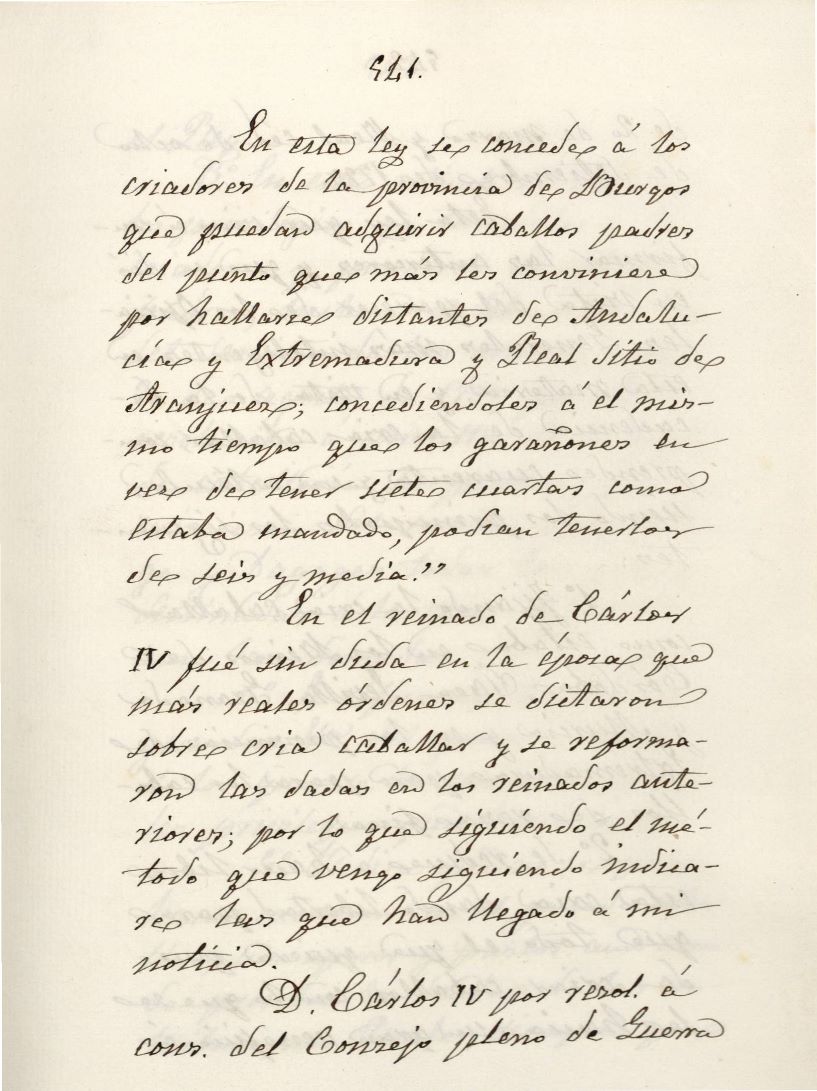 541.
En esta ley se concede á los
criadores de la provincia de Burgos
que puedan adquirir caballos padres
del punto que más les conviniere
por hallarse distantes de Andalu-
cía y Extremadura y Real Sitio de
Aranjuez; concediéndoles á el mis-
mo tiempo que los garañones en
vez de tener siete cuartas como
estaba mandado, podian tenerlos
de seis y media."
En el reinado de Cárlos
IV fué sin duda en la época que
más reales órdenes se dictaron
sobre cria caballar y se reforma-
ron las dadas en los reinados ante-
riores; por lo que siguiendo el mé-
todo que vengo siguiendo indica-
re las que han llegado á mi
noticia.
D. Cárlos IV por resol. á
cons. del Consejo pleno de Guerra